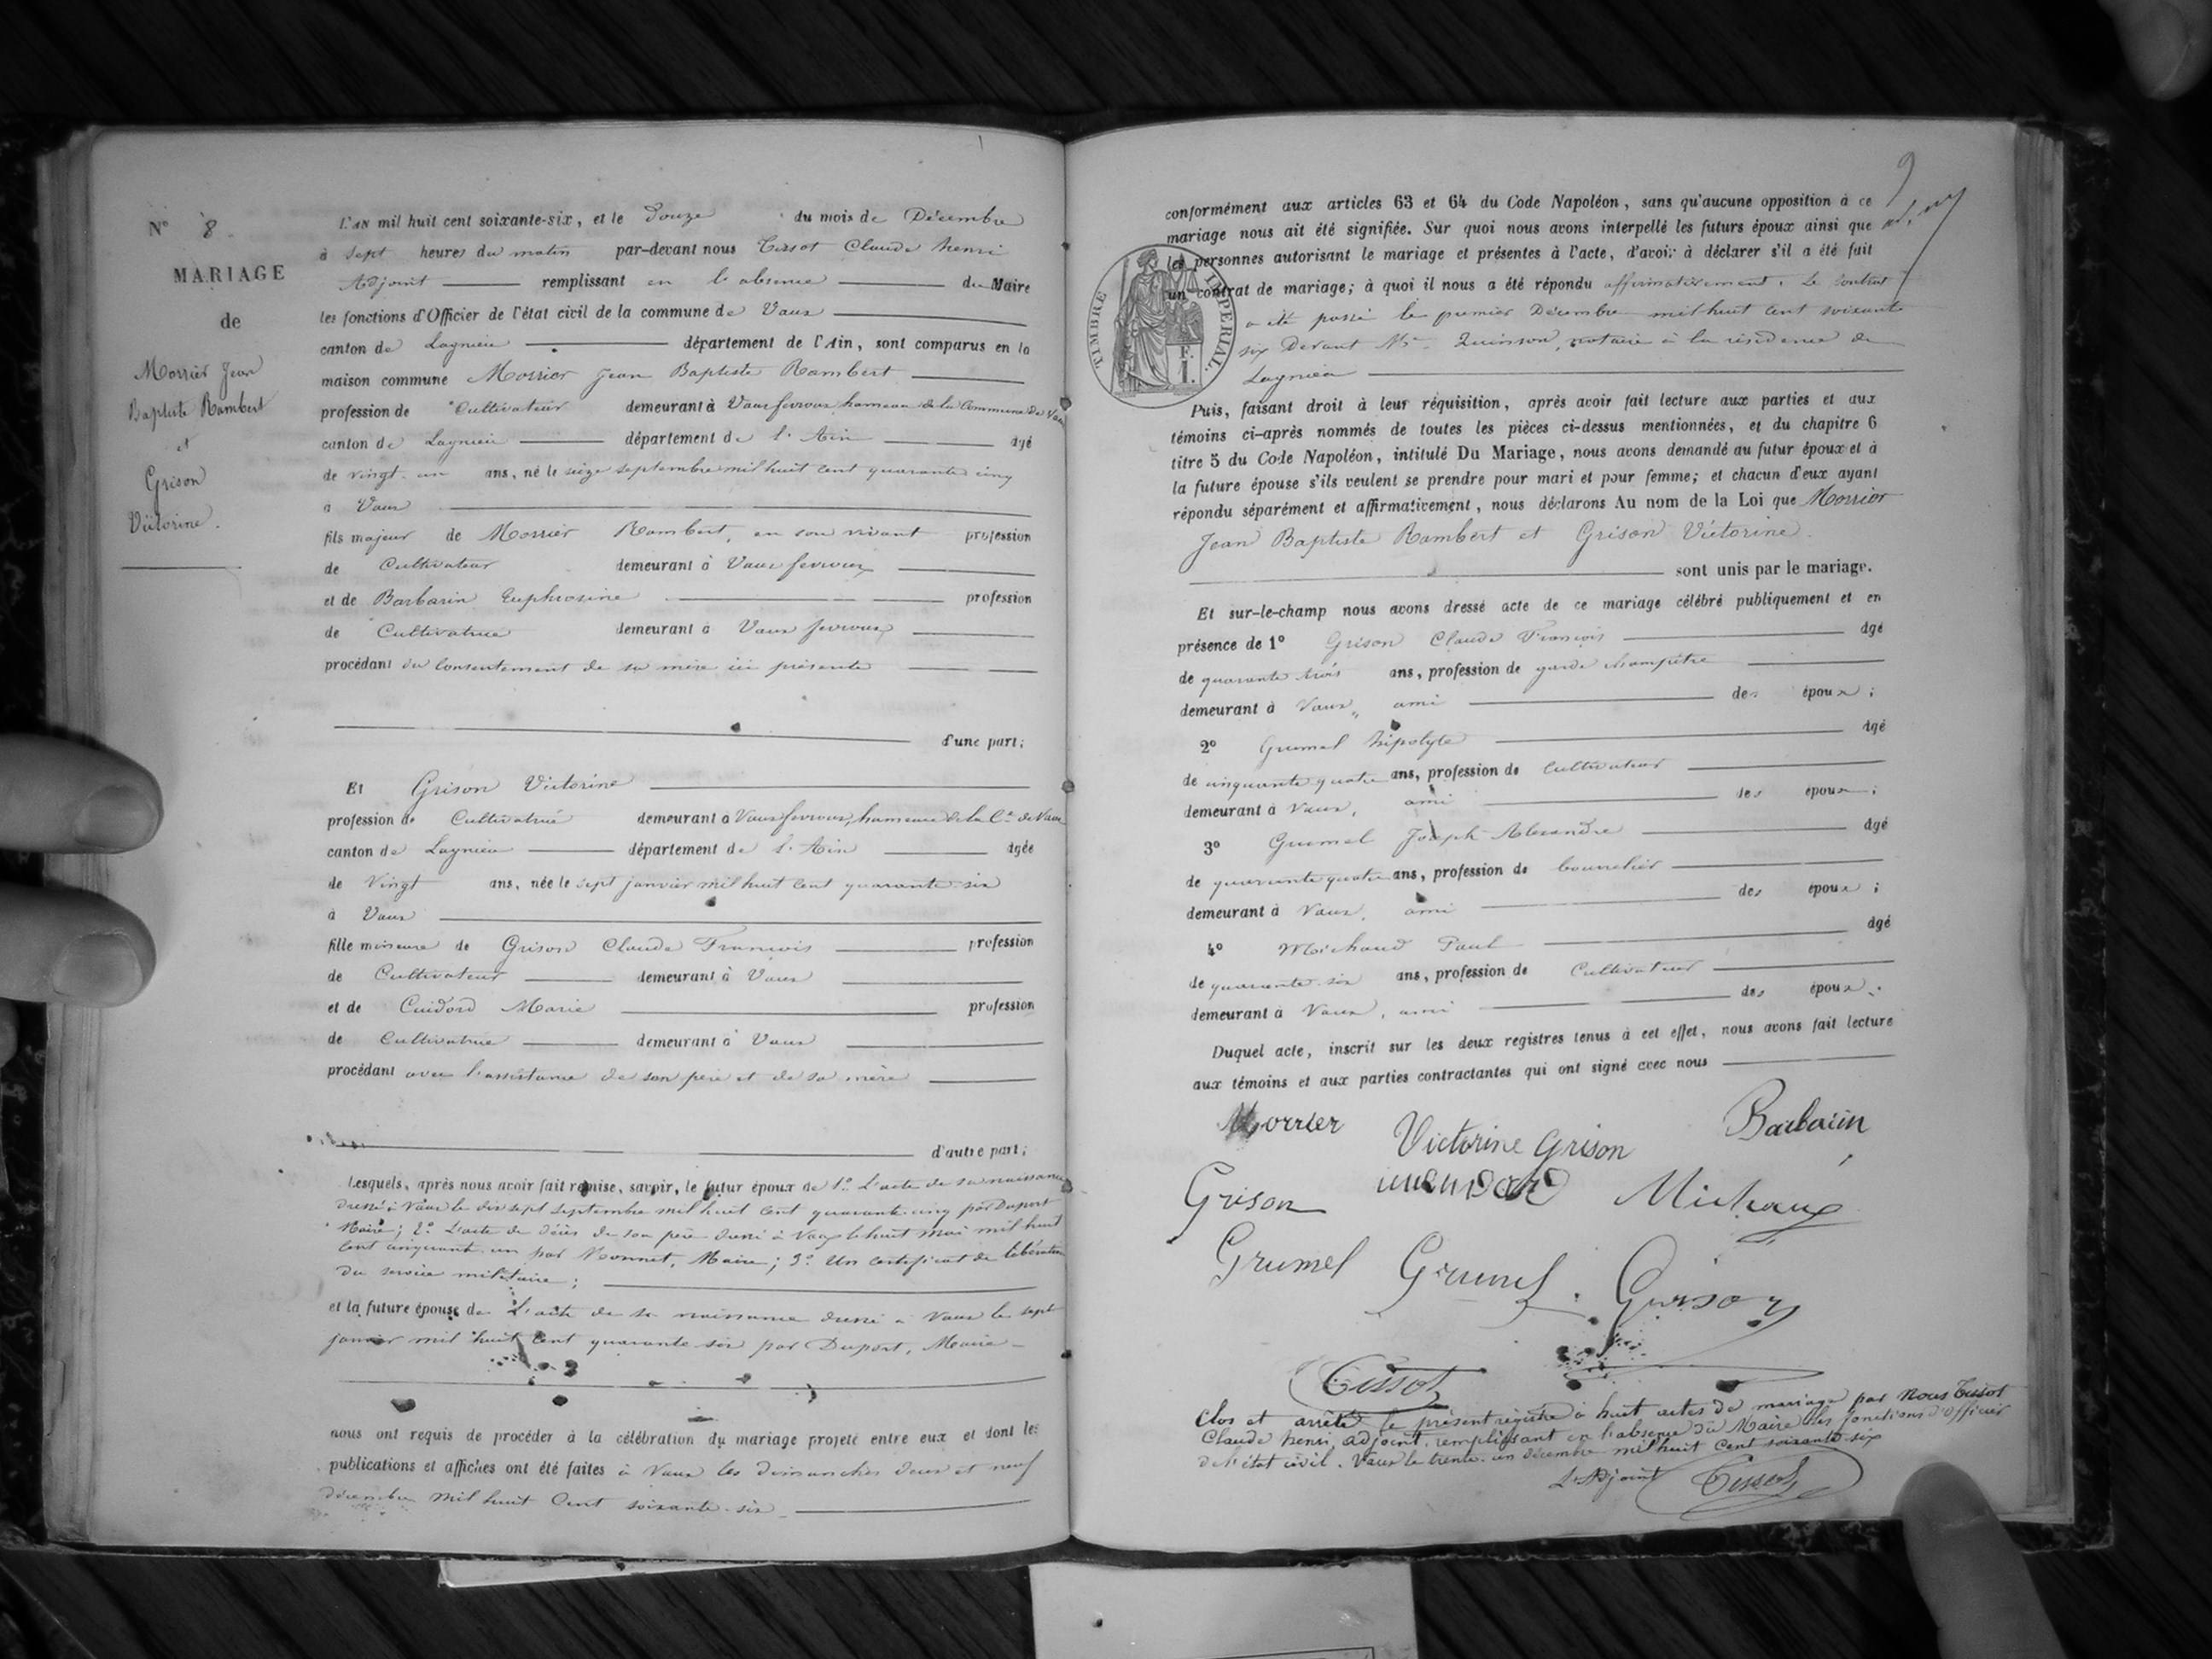 N° 8.
MARIAGE
de
Morrier Jean
Baptiste Rambert
et
Grison
Victorine.
L'AN mil huit cent soixante-six, et le Douze du mois de Décembre
à sept heures du matin par-devant nous Tissot Claude henri
Adjoint remplissant en l'absence du Maire
les fonctions d'Officier de l'état civil de la commune de Vaux
canton de Lagnieu département de l'Ain, sont comparus en la
maison commune Morrier Jean Baptiste Rambert
profession de Cultivateur demeurant à Vaux fevroux hameau de la Commune de Vaux
canton de Lagnieu département de l'Ain âgé
de vingt-un ans, né le seize septembre mil huit cent quarante cinq
à Vaux
fils majeur de Morrier Rambert, en son vivant profession
de Cultivateur demeurant à Vaux fevroux
et de Barbarin Euphrosine profession
de Cultivatrice demeurant à Vaux fevroux
procédant du Consentement de sa mère ici présente
d'une part;
Et Grison Victorine
profession de Cultivatrice demeurant à Vaux fevroux, hameau de la Cne de Vaux
canton de Lagnieu département de l'Ain âgée
de Vingt ans, née le sept janvier mil huit cent quarante-six
à Vaux
fille mineure de Grison Claude François profession
de Cultivateur demeurant à Vaux
et de Marie profession
de Cultivatrice demeurant à Vaux
procédant avec l'assistance de son père et de sa mère
d'autre part;
Lesquels, après nous avoir fait remise, savoir, le futur époux de 1° L'acte de sa naissance
dressé à Vaux le dix sept septembre mil huit cent quarante-cinq par Duport
Maire; 2° L'acte de décès de son père dressé à Vaux le huit mai mil huit
cent cinquante-un par Monnet, Maire; 3° Un certificat de libération
du service militaire;
et la future épouse de L'acte de sa naissance dressé à Vaux le sept
janvier mil huit cent quarante-six par Duport, Maire
nous ont requis de procéder à la célébration du mariage projeté entre eux et dont les
publications et affiches ont été faites à Vaux les dimanches deux et neuf
décembre mil huit Cent soixante-six
9
conformément aux articles 63 et 64 du Code Napoléon, sans qu'aucune opposition à ce
mariage nous ait été signifiée. Sur quoi nous avons interpellé les futurs époux ainsi que
les personnes autorisant le mariage et présentes à l'acte, d'avoir à déclarer s'il a été fait
un contrat de mariage; à quoi il nous a été répondu affirmativement. Le Contrat
a été passé le premier Décembre mil huit Cent soixante
six Devant Me. Quinson, notaire à la résidence de
Lagnieu
TIMBRE IMPERIAL
F.
1.
Puis, faisant droit à leur réquisition, après avoir fait lecture aux parties et aux
témoins ci-après nommés de toutes les pièces ci-dessus mentionnées, et du chapitre 6
titre 5 du Code Napoléon, intitulé Du Mariage, nous avons demandé au futur époux et à
la future épouse s'ils veulent se prendre pour mari et pour femme; et chacun d'eux ayant
répondu séparément et affirmativement, nous déclarons Au nom de la Loi que Morrier
Jean Baptiste Rambert et Grison Victorine.
sont unis par le mariage.
Et sur-le-champ nous avons dressé acte de ce mariage célébré publiquement et en
présence de 1° Grison Claude François âgé
de quarante trois ans, profession de garde champêtre
demeurant à Vaux, ami des époux;
2° Grumel hipolyte âgé
de cinquante quatre ans, profession de Cultivateur
demeurant à Vaux, ami des époux;
3° Grumel Joseph Alexandre âgé
de quarante quatre ans, profession de bourrelier
demeurant à Vaux, ami des époux;
4° Michaud Paul âgé
de quarante-six ans, profession de Cultivateur
demeurant à Vaux, ami des époux.
Duquel acte, inscrit sur les deux registres tenus à cet effet, nous avons fait lecture
aux témoins et aux parties contractantes qui ont signé avec nous
Morrier Victorine Grison Barbarin
Grison Michaud
Grumel Grumel Grison
Tissot
Clos et arrêté le présent registre à huit actes de mariage par Nous Tissot
Claude henri, adjoint, remplissant en l'absence du Maire les fonctions d'officier
de l'état civil. Vaux le trente-un décembre mil huit Cent soixante-six
L'Adjoint Tissot